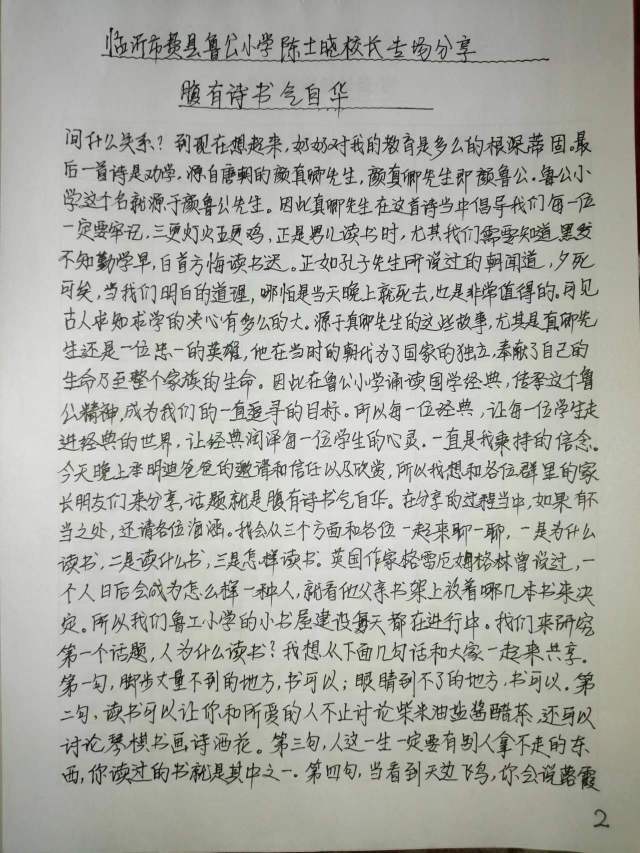 临沂市费县鲁公小学陈士晓校长专场分享
腹有诗书气自华
间什么关系？到现在想起来，奶奶对我的教育是多么的根深蒂固。最
后一首诗是劝学，源自唐朝的颜真卿先生，颜真卿先生即颜鲁公。鲁公小
学这个名就源于颜鲁公先生。因此真卿先生在这首诗当中倡导我们每一位
一定要牢记，三更灯火五更鸡，正是男儿读书时，尤其我们需要知道黑发
不知勤学早，白首方悔读书迟。正如孔子先生所说过的朝闻道，夕死
可矣，当我们明白的道理，哪怕是当天晚上就死去，也是非常值得的。可见
古人求知求学的决心有多么的大。源于真卿先生的这些故事，尤其是真卿先
生还是一位忠一的英雄，他在当时的朝代为了国家的独立，奉献了自己的
生命乃至整个家族的生命。因此在鲁公小学诵读国学经典，传承这个鲁
公精神，成为我们的一直追寻的目标。所以每一位经典，让每一位学生走
进经典的世界，让经典润泽每一位学生的心灵，一直是我秉持的信念。
今天晚上李明迪爸爸的邀请和信任以及欣赏，所以我想和各位群里的家
长朋友们来分享，话题就是腹有诗书气自华。在分享的过程当中，如果有不
当之处，还请各位海涵。我会从三个方面和各位一起来聊一聊，一是为什么
读书，二是读什么书，三是怎样读书。英国作家格雷厄姆格林曾说过，一
个人日后会成为怎么样一种人，就看他父亲书架上放着哪几本书来决
定。所以我们鲁工小学的小书屋建设每天都在进行中。我们来研究
第一个话题，人为什么读书？我想从下面几句话和大家一起来共享。
第一句，脚步丈量不到的地方，书可以；眼睛到不了的地方，书可以。第
二句，读书可以让你和所爱的人不止讨论柴米油盐酱醋茶，还可以
讨论琴棋书画诗酒花。第三句，人这一生一定要有别人拿不走的东
西，你读过的书就是其中之一。第四句，当看到天边飞鸟，你会说落霞
2